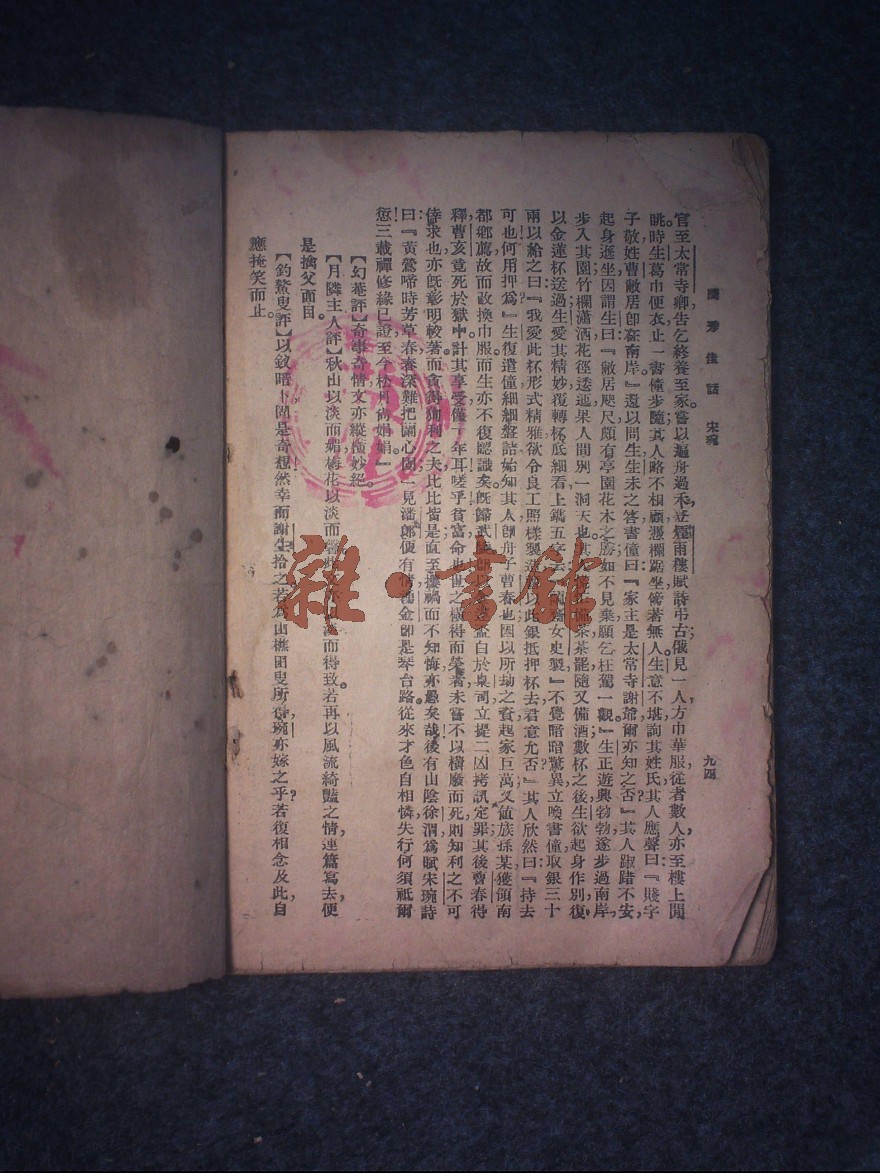 閨秀佳話　宋琬
九四
官至太常寺卿告乞終養至家嘗以扁舟過禾，遊煙雨樓，賦詩弔古，俄見一人，方巾華服，從者數人，亦至樓上閒
眺，時生葛巾便衣，止一書僮步隨，其人略不相顧，憑欄踞坐，傍若無人，生意不堪，詢其姓氏，其人應聲曰：『賤字
子敬，姓曹，敝居卽在南岸。』還以問生，生未之答，書僮曰：『家主是太常寺謝爺，爾亦知之否？』其人踧踖不安，
起身遜坐，因謂生曰：『敝居咫尺，頗有亭園花木之勝，如不見棄，願乞枉駕一觀。』生正遊興勃勃，遂步過南岸，
步入其園，竹欄瀟洒，花徑逶迤，果人間別一洞天也，其人備茶，茶罷，隨又備酒，數杯之後，生欲起身作別，復
以金蓮杯送過，生愛其精妙，覆轉杯底細看，上鐫五字云：『　　女史製』不覺暗暗驚異，立喚書僮，取銀三十
兩以給之曰：『我愛此杯形式精雅，欲令良工照樣製造，　以此銀抵押杯去，君意允否？』其人欣然曰：『持去
可也，何用押爲。』生復遣僮細細盤詰，始知其人卽舟子曹春也，因以所劫之資，起家巨萬，又値族孫某獲領南
都鄉薦，故而改換巾服，而生亦不復認識矣，旣歸武　，卽以　盃白於臬司，立提二凶，拷訊定罪，其後曹春待
釋，曹亥竟死於獄中，計其享受，僅　年耳，嗟乎，貧富命也，世之橫得而榮者，未嘗不以橫廢而死，則知利之不可
倖求也，亦旣彰明較著，而貪得　利之夫，比比皆是，直至攖禍而不知悔，亦愚矣哉，後有山陰徐渭爲賦宋琬詩
曰：『黃鶯啼時芳草春，春深難把閫心　，一見潘郞便有情，　金卽是琴台路，從來才色自相憐，失行何須祇爾
愆，三載禪修緣已證，至今松月尙娟娟。』
【幻菴評】奇事奇情，文亦縱橫妙絕。
【月隣主人評】秋山以淡而媚，梅花以淡而　，此　亦以淡而得致，若再以風流綺豔之情，連篇寫去，便
是擒父面目。
【釣鰲叟評】以敘暗卜，固是奇想，然幸而謝生拾之，若爲山樵田叟所得，琬亦嫁之乎？若復相念及此，自
應掩笑而止。
雜·書館